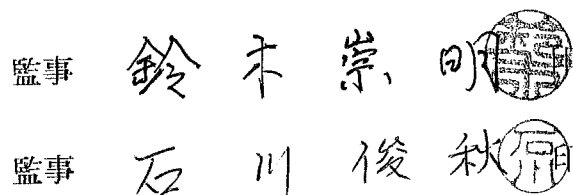 監事 鈴木崇明
監事 石川俊秋